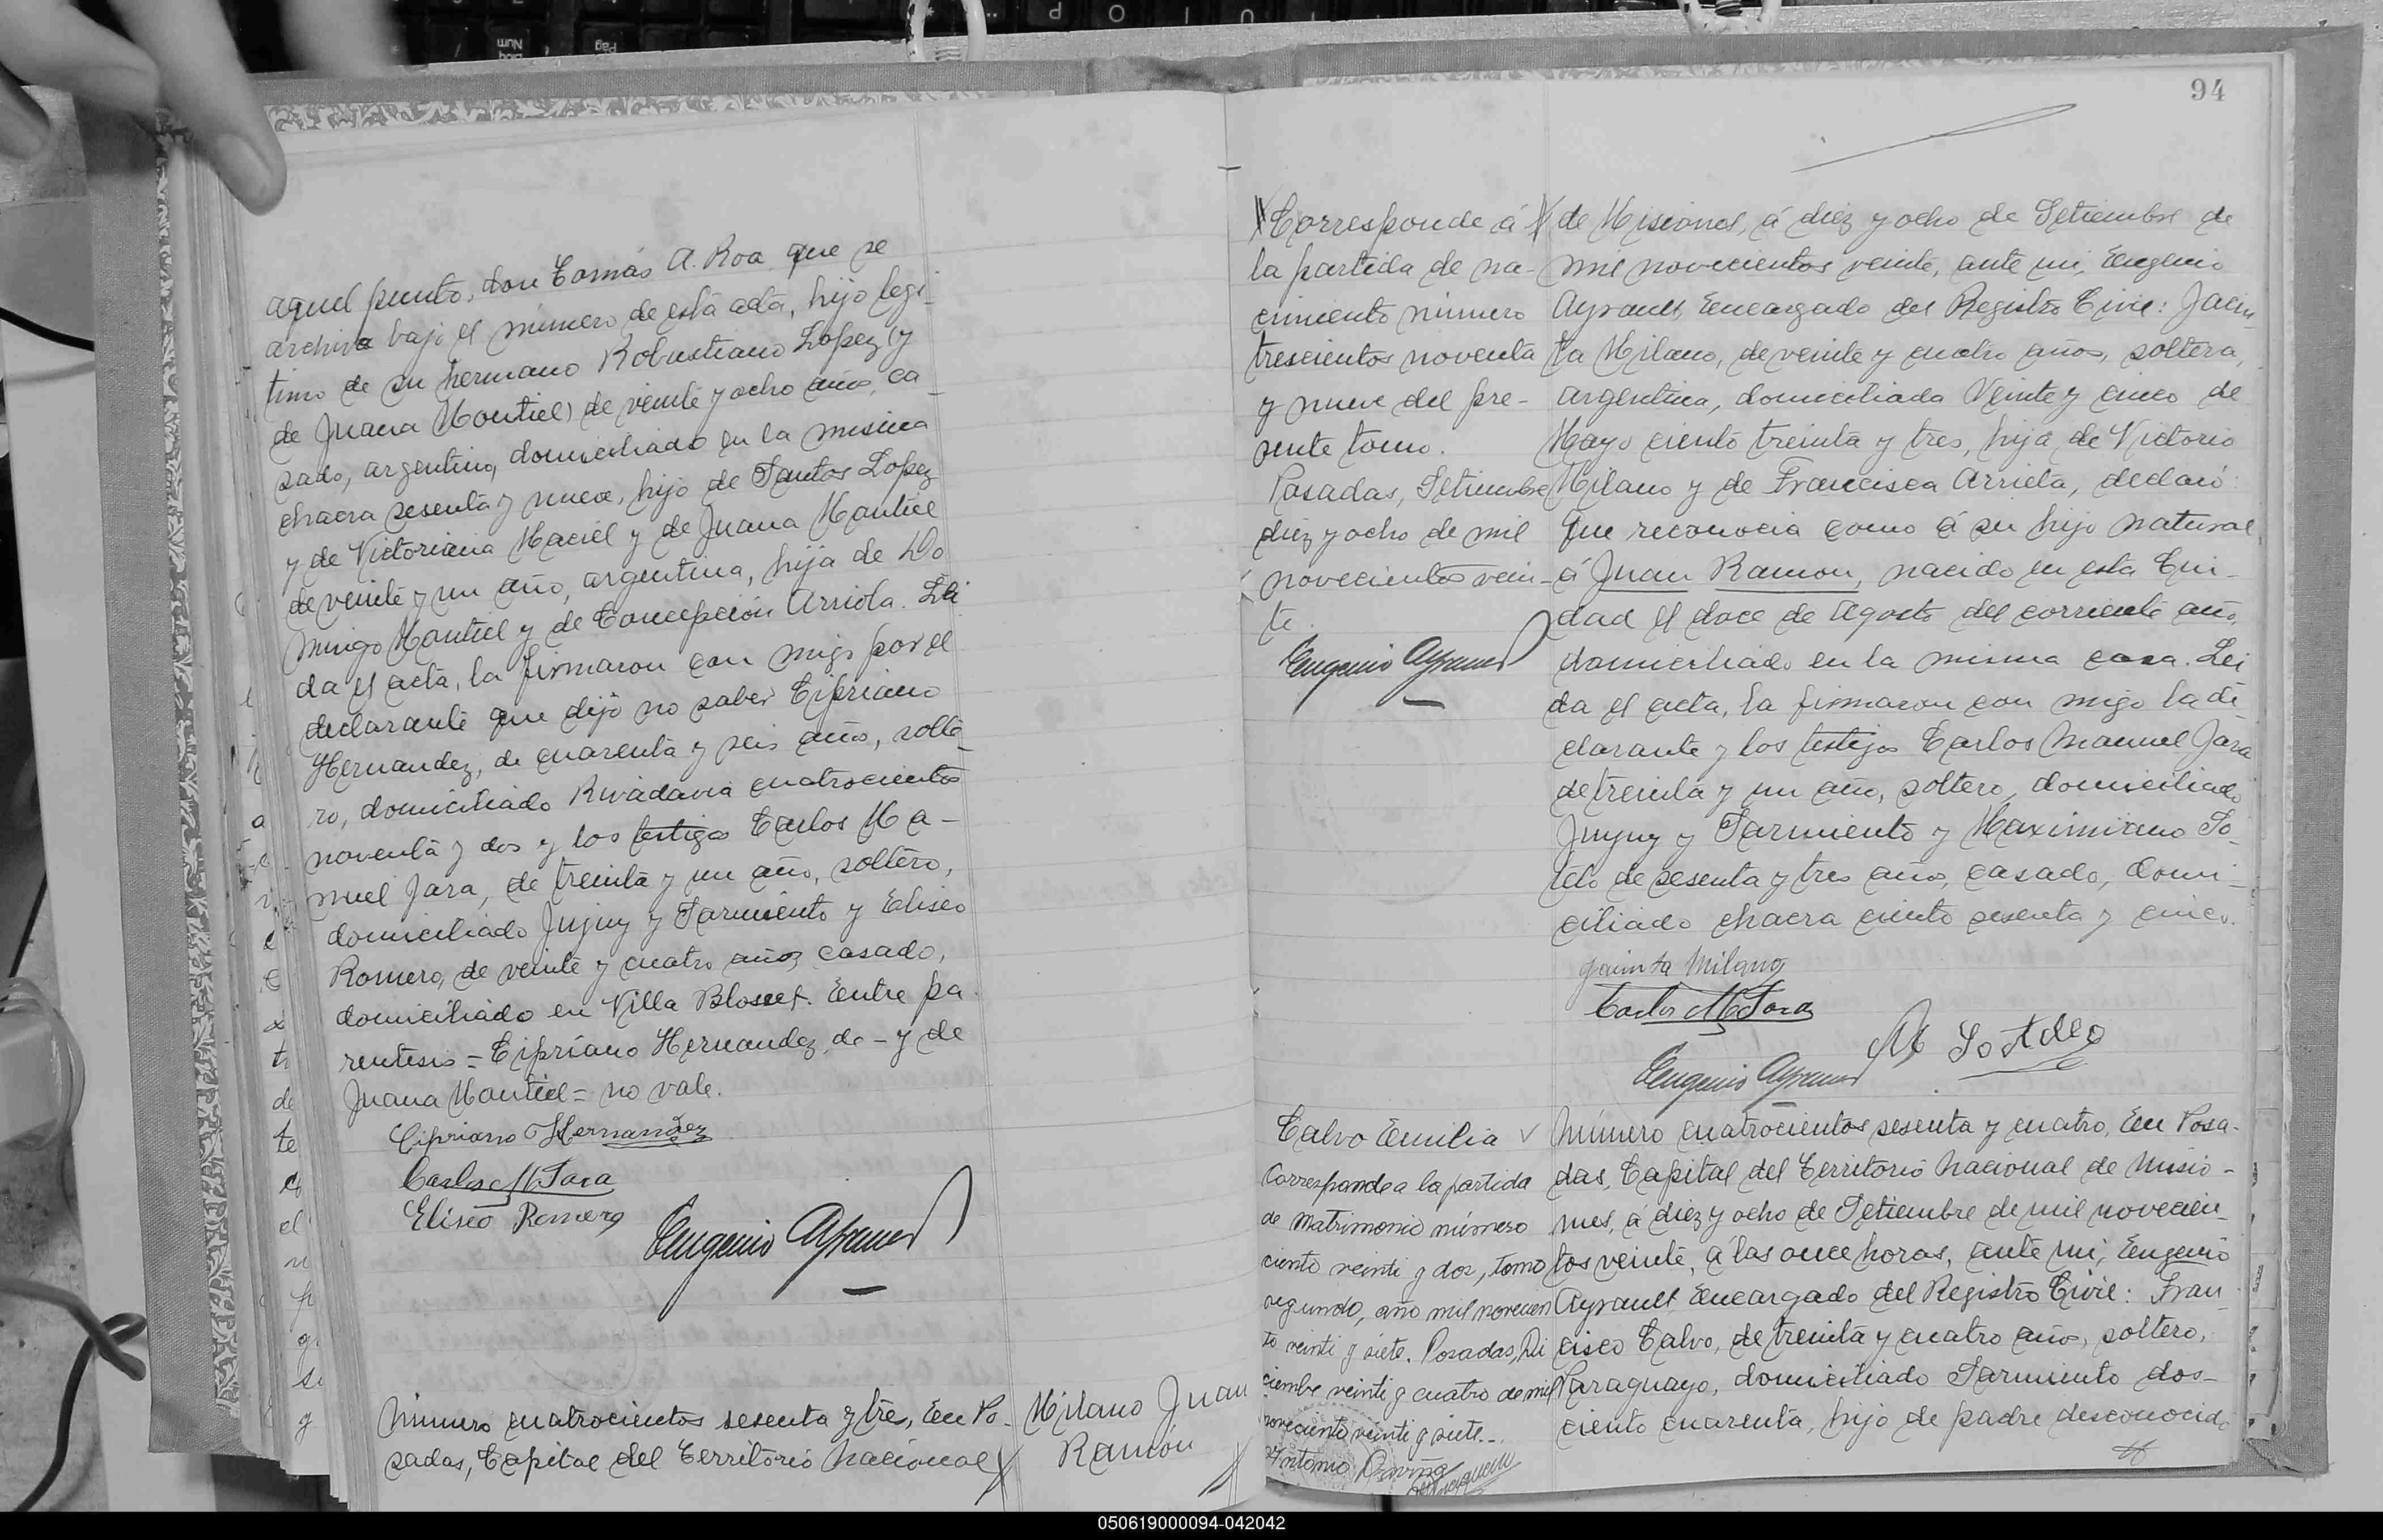 aquel punto, don Tomás A. Roa que se
archiva bajo el número de esta acta, hijo legi-
timo de su hermano Robustiano Lopez (y
de Juana Montiel) de veinte y ocho años, ca-
sado, argentino, domiciliado en la misma
chacra sesenta y nueve, hijo de Santos Lopez
y de Victoriana Maciel y de Juana Montiel
de veinte y un año, argentina, hija de Do
mingo Montiel y de Concepción Arriola. Lei
da el acta, la firmaron con migo por el
declarante que dijo no saber Cipriano
Hernandez, de cuarenta y seis años, solte-
ro, domiciliado Rivadavia cuatrocientos
noventa y dos y los testigos Carlos Ma-
nuel Jara, de treinta y un año, soltero,
domiciliado Jujuy y Sarmiento y Eliseo
Romero, de veinte y cuatro años, casado,
domiciliado en Villa Blosset. Entre pa-
rentesis = Cipriano Hernandez, de - y de
Juana Montiel = no vale.
Cipriano Hernandez
Carlos M Jara
Eliseo Romero
Eugenio Ayrault
Número cuatrocientos sesenta y tres, En Po-
sadas, Capital del Territorio Nacional
Milano Juan
Ramón
94
Corresponde á
la partida de na-
cimiento número
trescientos noventa
y nueve del pre-
sente tomo.
Posadas, Setiembre
diez y ocho de mil
novecientos vein-
te.
Eugenio Ayrault
de Misiones, á diez y ocho de Setiembre de
mil novecientos veinte, ante mi, Eugenio
Ayrault, Encargado del Registro Civil: Jacin
ta Milano, de veinte y cuatro años, soltera,
argentina, domiciliada Veinte y cinco de
Mayo ciento treinta y tres, hija de Victorio
Milano y de Francisca Arrieta, declaró:
que reconocia como á su hijo natural,
á Juan Ramon, nacido en esta Ciu-
dad el doce de Agosto del corriente año,
domiciliado en la misma casa. Lei
da el acta, la firmaron con migo la de
clarante y los testigos Carlos Manuel Jara
de treinta y un año, soltero, domiciliado
Jujuy y Sarmiento y Maximiano So-
telo de sesenta y tres años, casado, domi-
ciliado chacra ciento sesenta y cinco.
Jacinta Milano
Carlos M Jara
M Sotelo
Eugenio Ayrault
Calvo Emilia
Corresponde a la partida
de matrimonio número
ciento veinti y dos, tomo
segundo, año mil novecien
to veinti y siete. Posadas, Di
ciembre veinti y cuatro de mil
novecientos veinti y siete.-
Antonio
Número cuatrocientos sesenta y cuatro, En Posa-
das, Capital del Territorio Nacional de Misio-
nes, á diez y ocho de Setiembre de mil novecien-
tos veinte, á las once horas, ante mi, Eugenio
Ayrault Encargado del Registro Civil: Fran
cisco Calvo, de treinta y cuatro años, soltero,
Paraguayo, domiciliado Sarmiento dos-
ciento cuarenta, hijo de padre desconocido
050619000094-042042